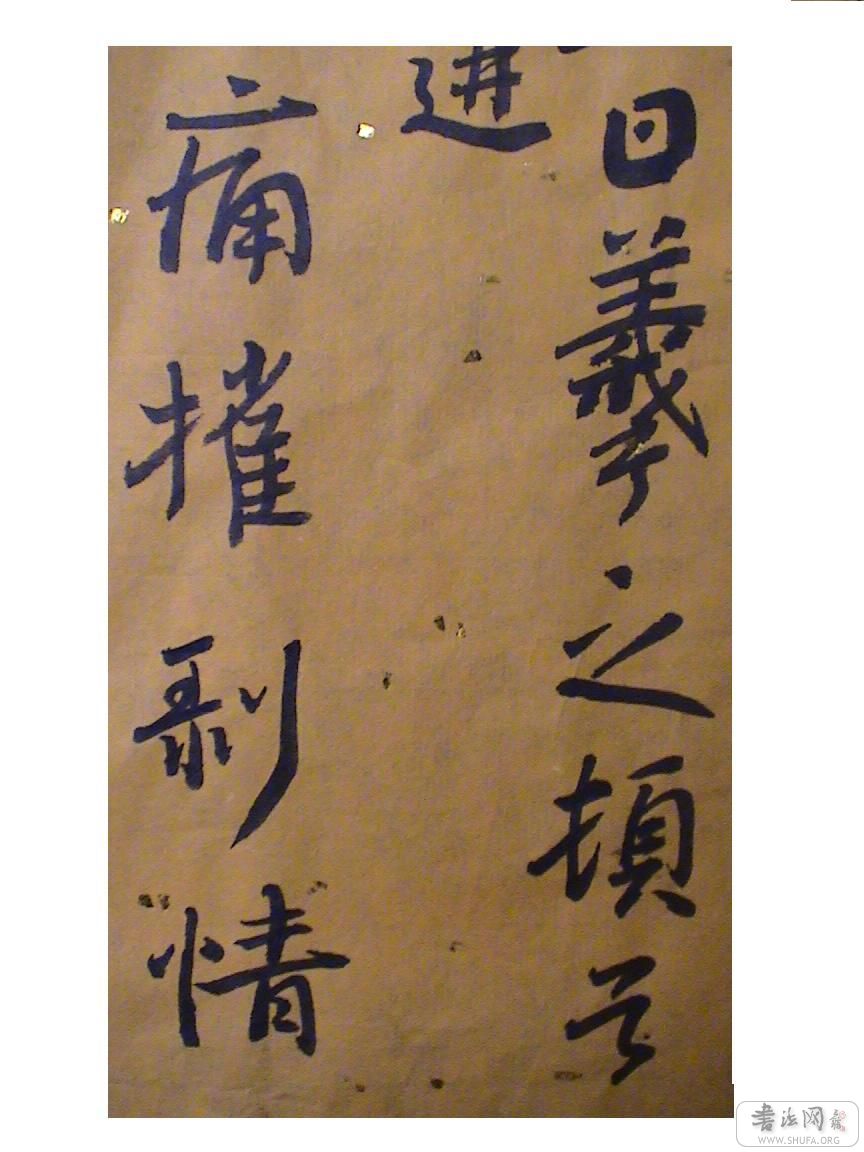 日羲之頓首
遘
痛摧剝情
書法网
WWW.SHUFA.ORG